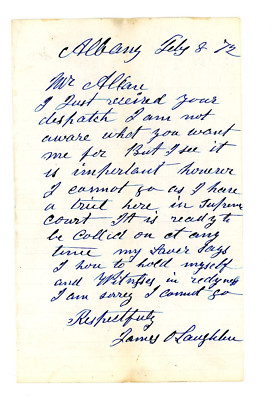 Albany Feby 8 72
Mr Alkan
I Just recived your
despatch I am not
aware what you want
me for But I see it
is important howevr
I cannot go as I have
a trial here in Suprem
court It is ready to
be Collid on at any
time my Lawer Says
I hove to hold myself
and Witnises in redyness
I am sorrey I connot go
Respectfuly
James O Laughlin